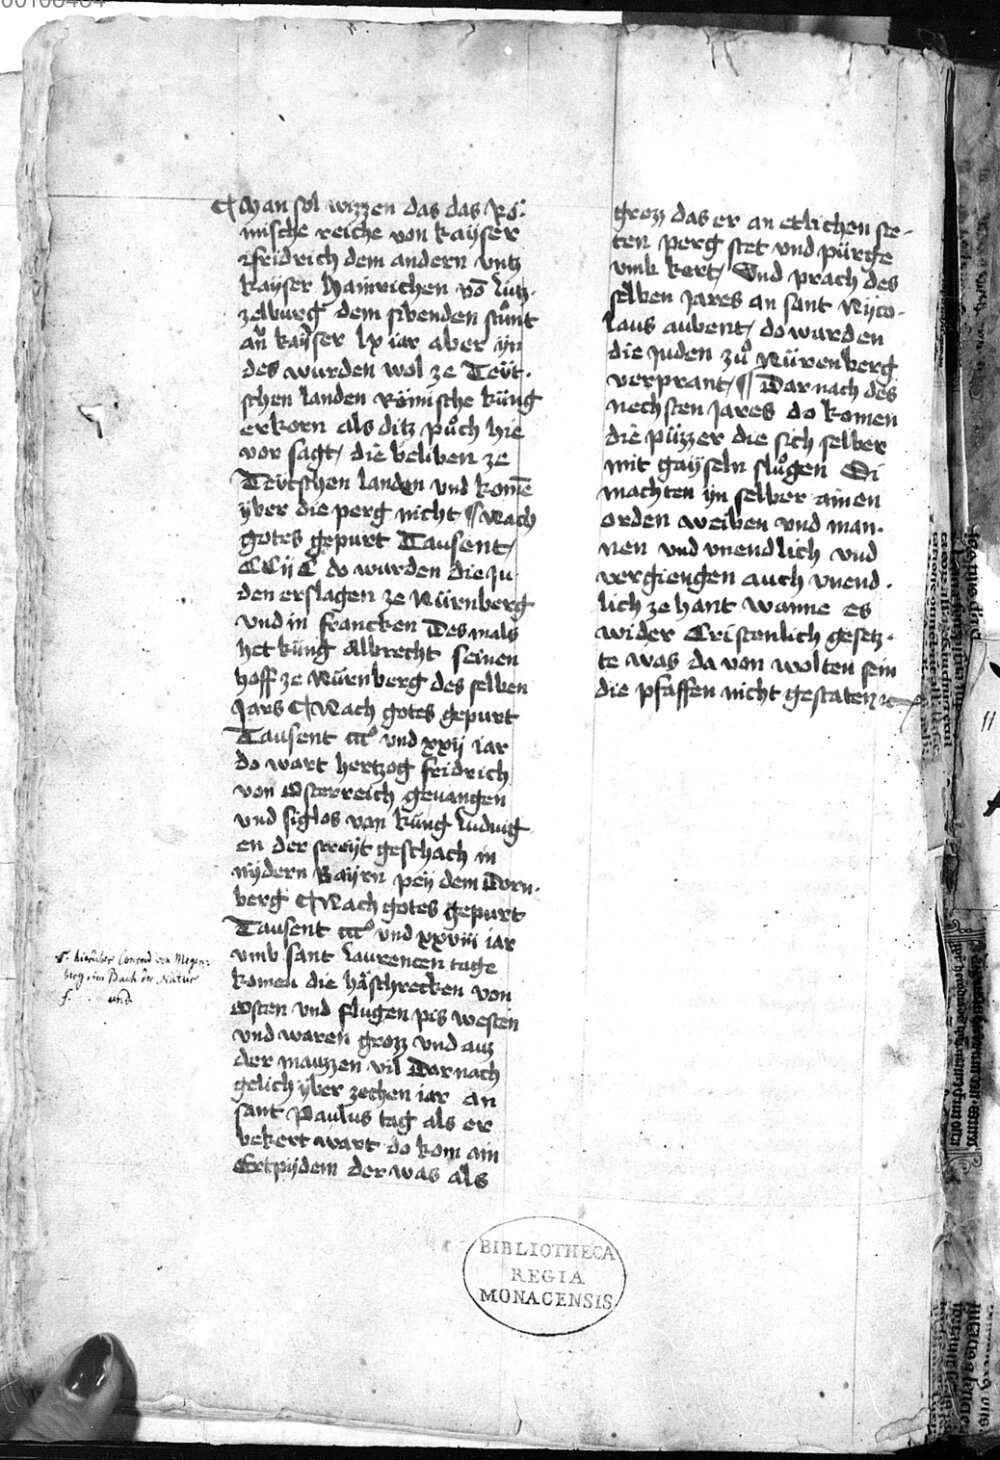 00108404
Man sol wizzen das das Rö-
mische reiche von kayser
fridrich dem andern vntz
kayser Hainrichen vō lutz-
zelburg dem sibenden stůnt
an kayser lx iar aber yn
des wurden wol ze Teüt-
schen landen Römische küng
erkorn als ditz půch hie
vor sagt / die beliben ze
Teütschen landen vnd komē
yber die perg nicht ¶ Nach
gotes gepurt Tausent /
CCijC do wurden die Ju-
den erslagen ze Nürnberg
vnd in francken Desmals
het küng Albrecht seinen
hoff ze Nürnberg des selben
Jars ¶ Nach gotes gepurt
Tausent cccº vnd xxij iar
do wart hertzog fridrich
von österreich gevangen
vnd siglos von küng ludwig
en der streyt geschach in
nydern Bayrn pey dem Dorn-
berg ¶ Nach gotes gepurt
Tausent cccº vnd xxviii iar
vmb sant laurencen tage
komen die häschrecken von
osten vnd flugen pis westen
vnd waren grozz vnd auz
der mauzzen vil Dar nach
gelich yber zechen iar an
sant Paulus tag als er
bekert wart do kom ain
Ertpydem der was als
grozz das er an etlichen ste-
ten perg stet vnd pürge
vmb kert / Vnd prach des
selben Jares an sant Nyco-
laus aubent / do wurden
die Juden zů Nürenberg
verprant / ¶ Dar nach des
nechsten Jares do komen
die püzzer die sich selber
mit gayseln slůgen Di
machten yn selber ainen
orden weiben vnd man-
nen vnd vnendlich vnd
vergiengen auch vnend-
lich ze hant wanne es
wider Cristenlich gesetz-
te was da von wolten sein
die pfaffen nicht gestaten
hierüber Conrad von Megen-
berg im Buch der Natur
f. und
BIBLIOTHECA
REGIA
MONACENSIS.